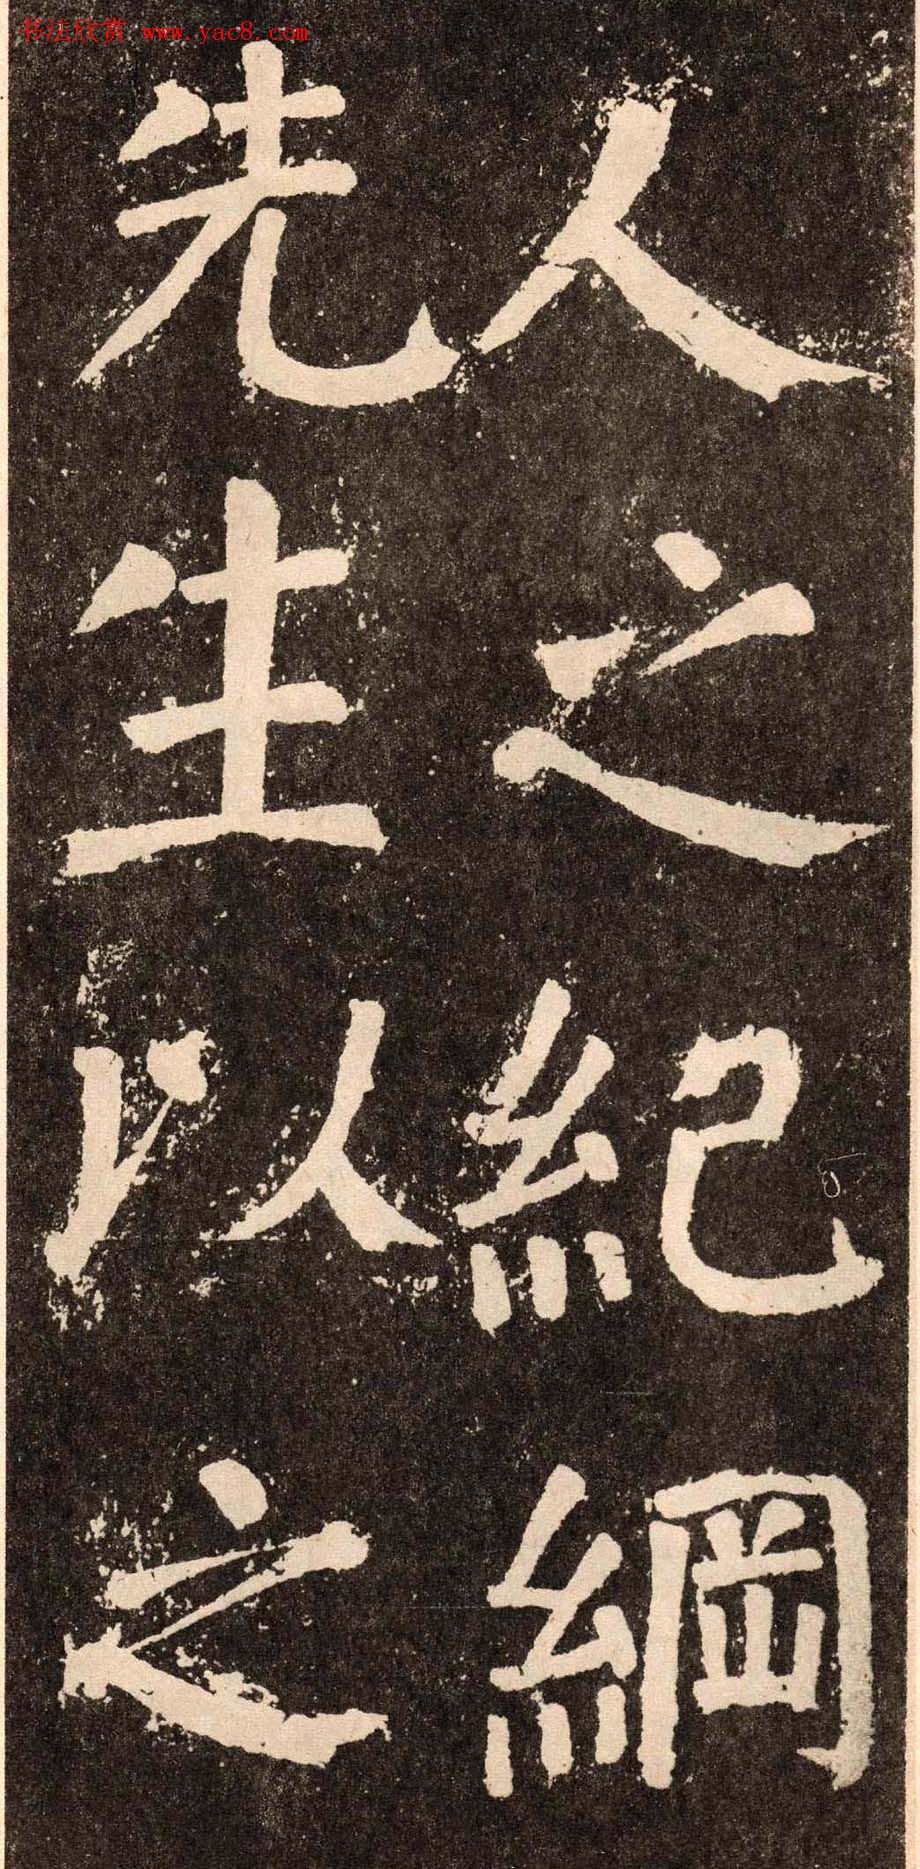 书法欣赏 www.yac8.com
人之紀綱
先生以之